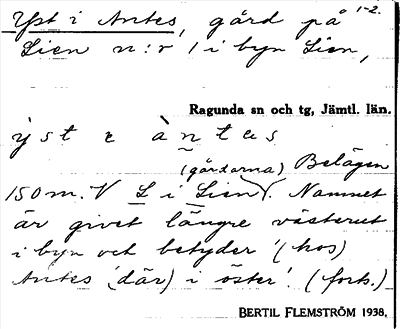 Yst i Antes, gård på 1-2.
Lien n:r 1 i byn Lien,
Ragunda sn och tg, Jämtl. län.
ỳst e àntas
(gårdarna) Belägen
150 m. V L i Lien). Namnet
är givet längre västerut
i byn och betyder '(hos)
Antes (där) i öster'. (forts.)
BERTIL FLEMSTRÖM 1938.